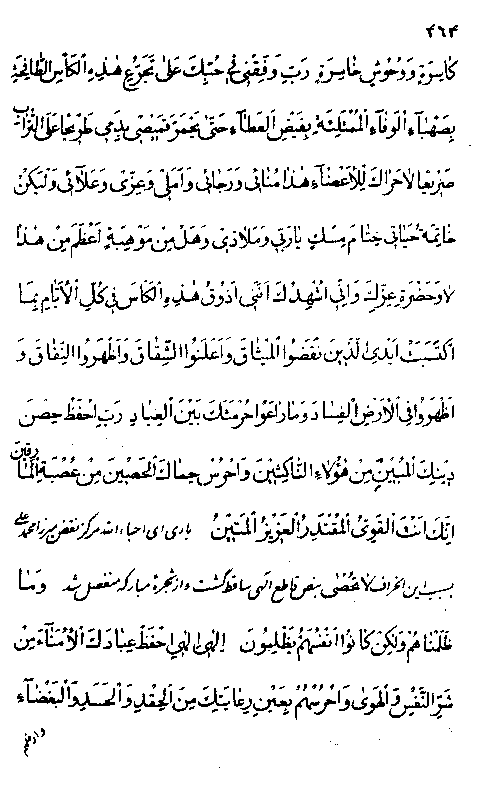 ٤٦٤
كاسرة ووحوش خاسرة رب وفقنى فى حبك على تجرّع هذه الكأس الطافحة
بصهباء الوفاء الممتلئة بفيض العطاء حتى يحمرّ قميصى بدمى طريحا على التراب
صريعا لا حراك للأعضاء هذا منائى ورجائى واملى وعزى وعلائى وليكن
خاتمة حياتى ختام مسك يا ربى وملاذى وهل من موهبة اعظم من هذا
لا وحضرة عزك وانى اشهدك اننى اذوق هذه الكأس فى كل الأيام بما
اكتسبت ايدى الذين نقضوا الميثاق واعلنوا الشقاق واظهروا النفاق و
اظهروا فى الارض الفساد وما راعوا حرمتك بين العباد رب احفظ حصن
دينك المبين من هؤلاء الناكثين واحرس حماك الحصين من عصبة المارقين
انك انت القوى المقتدر العزيز المتين بارى اى احباء الله مركز نقض ميرزا محمد على
بسبب اين انحراف لا تحصى بنص قاطع الهى ساقط گشت و از شجرهٔ مباركه منفصل شد وما
ظلمناهم ولكن كانوا انفسهم يظلمون الهى الهى احفظ عبادك الأمناء من
شر النفس والهوى واحرسهم بعين رعايتك من الحقد والحسد والبغضاء